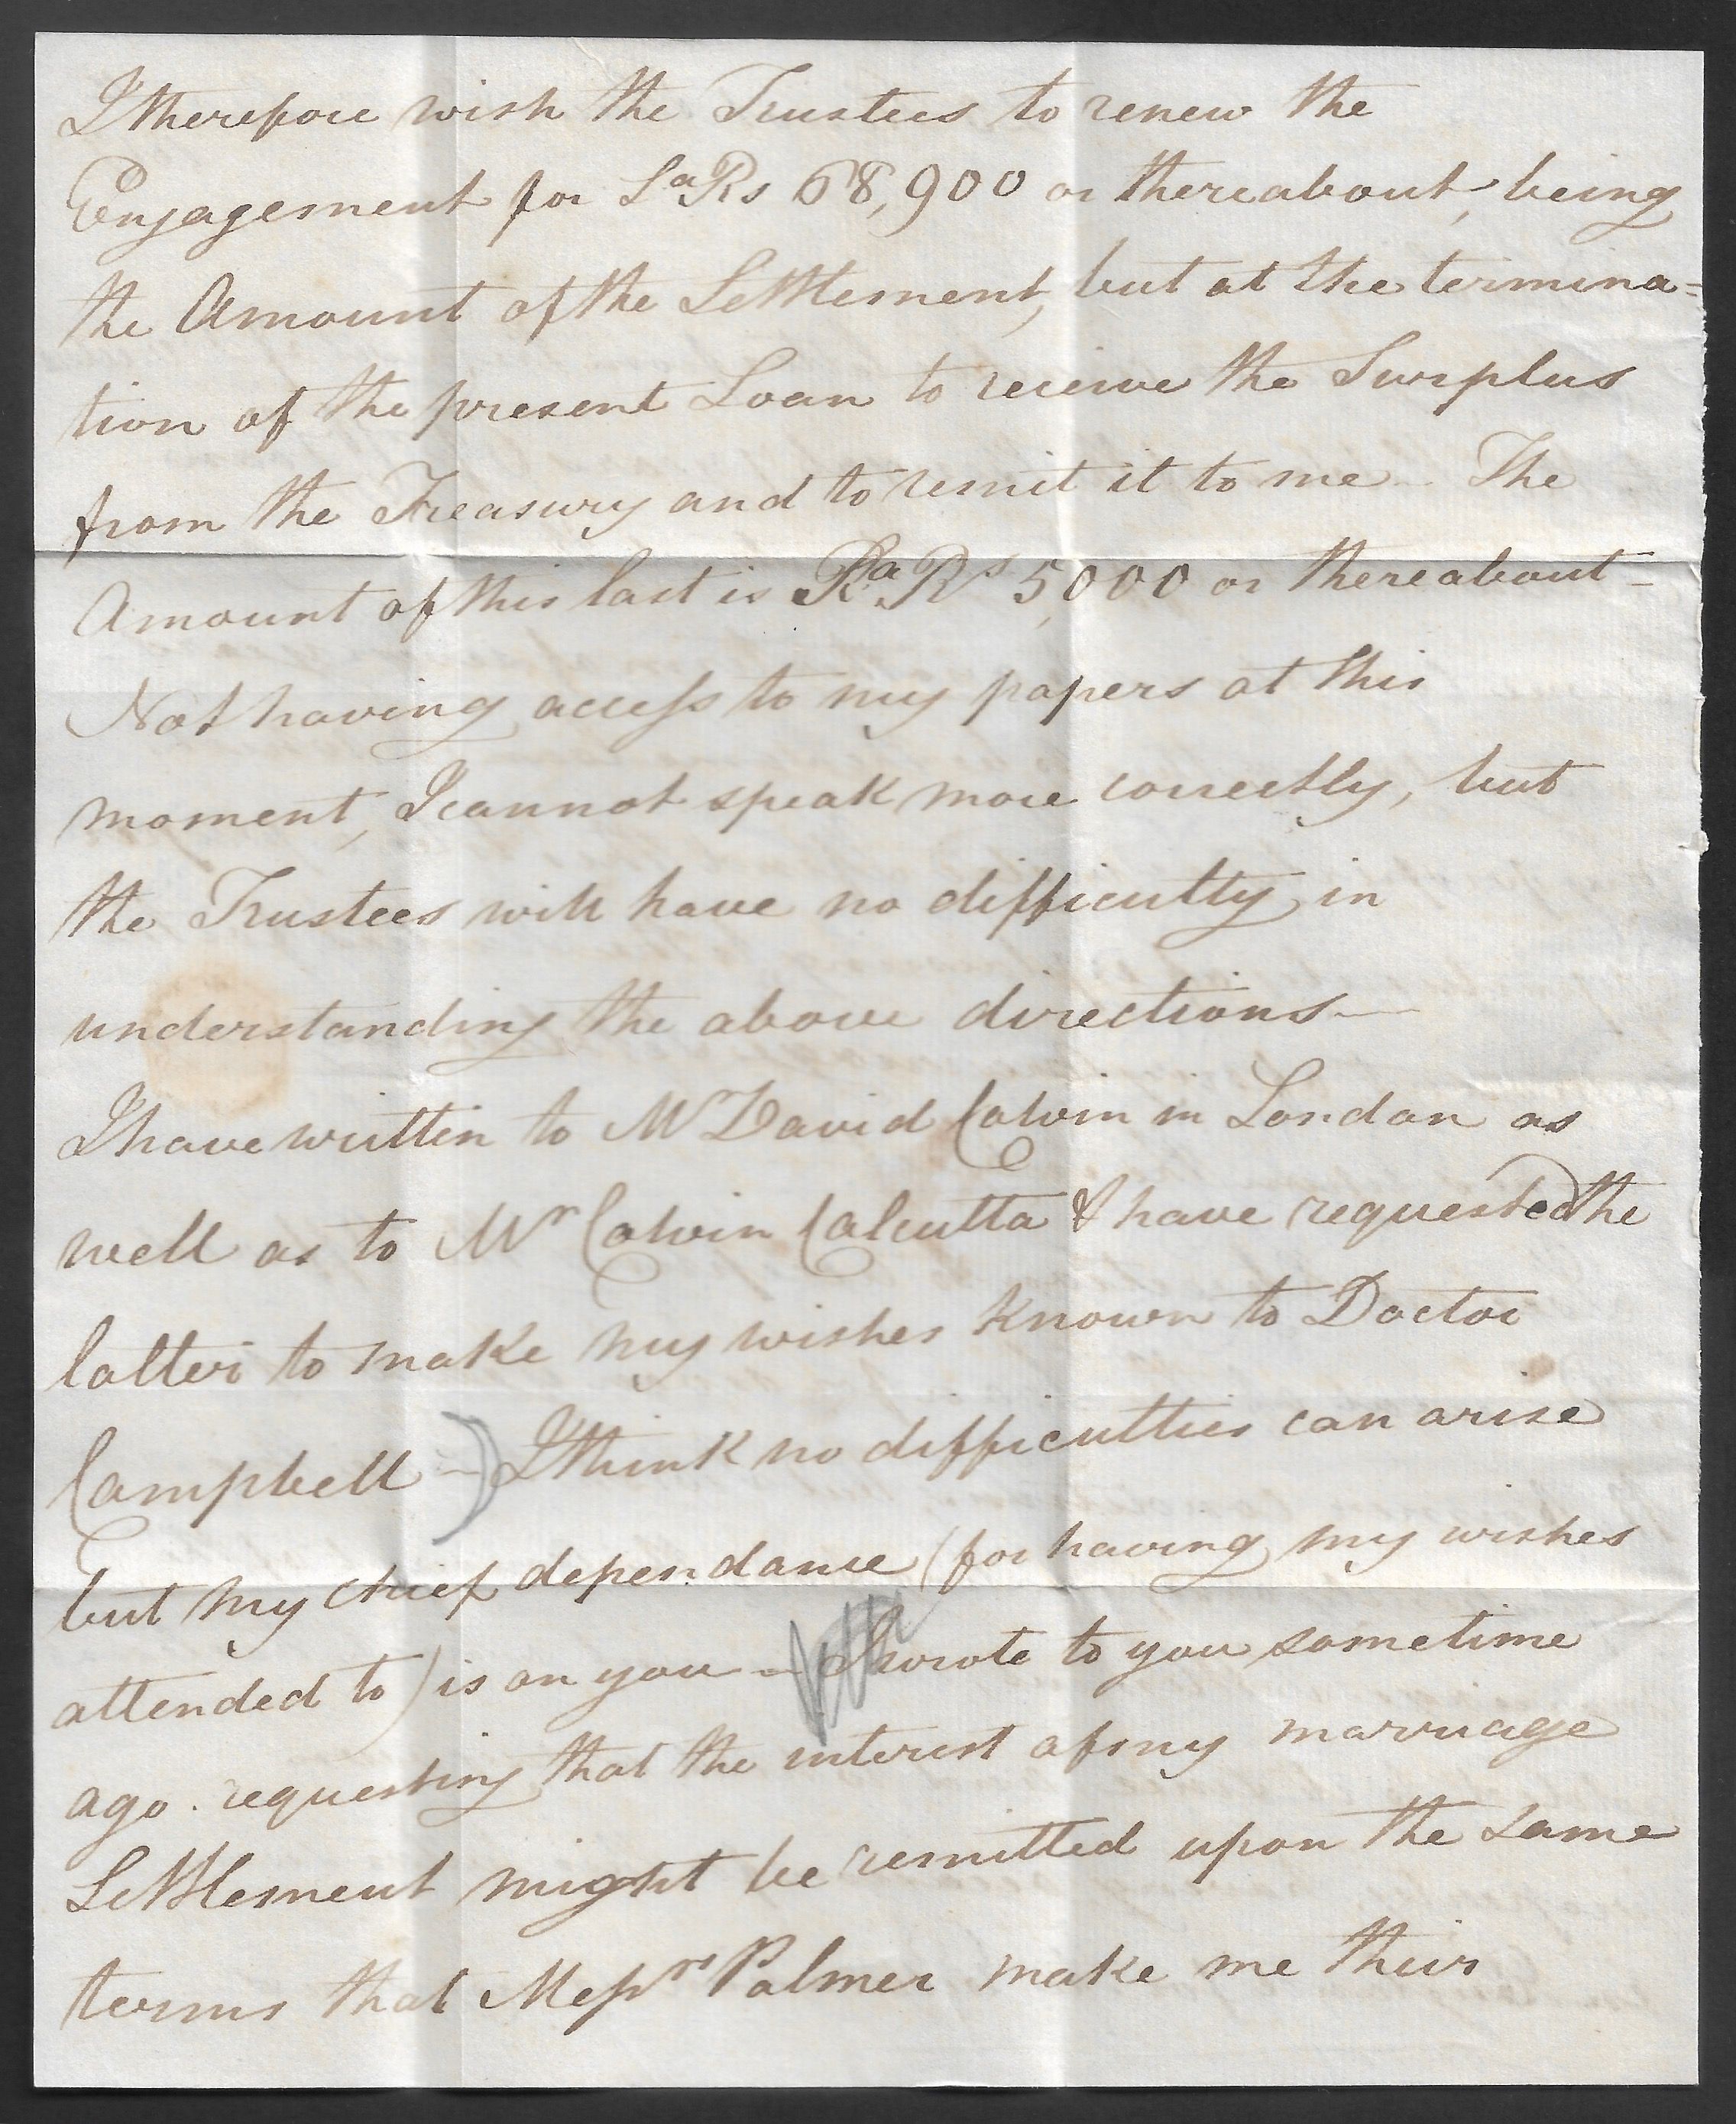 I therefore wish the Trustees to renew the
Engagement for Sa Rs 68,900 or thereabout, being
the Amount of the Settlement, but at the termina=
tion of the present Loan to receive the Surplus
from the Treasury and to remit it to me – The
Amount of this last is Sa Rs 5,000 or thereabout –
Not having access to my papers at this
moment, I cannot speak more correctly, but
the Trustees will have no difficulty in
understanding the above directions —
I have written to Mr David Colvin in London as
well as to Mr Colvin Calcutta & have requested the
latter to make my wishes known to Doctor
Campbell – I think no difficulties can arise
but my chief dependance (for having my wishes
attended to) is on you – I wrote to you sometime
ago. requesting that the interest of my marriage
Settlement might be remitted upon the same
terms that Messrs Palmer make me their